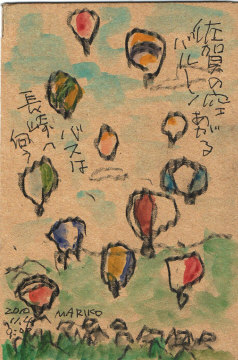 佐賀の空が
バルーンあがる
バスは
長崎へ
向う
2010
MARIKO